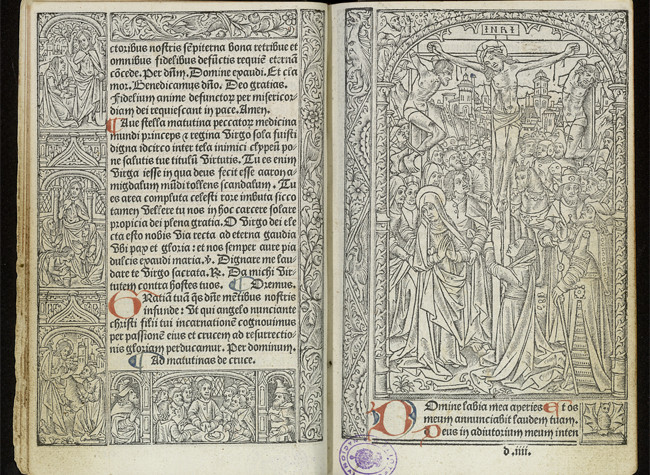 ctoribus nostris sẽpiterna bona retribue et
omnibus fidelibus defũctis requiẽ eternã
cõcede. Per dñm̃. Domine exaudi. Et cla
mor. Benedicamus dño. Deo gratias.
Fidelium anime defunctor per misericor
diam dei requiescant in pace. Amen.
¶ Aue stella matutina peccator medicina
mundi princeps et regina Virgo sola fuisti
digna idcirco inter tela inimici clypeũ po
ne salutis tue titulũ Virtutis. Tu es enim
Virga iesse in qua deus fecit esse aaron a
migdalum mũdi tollens scandalum. Tu
es area compluta celesti rore imbuta sicco
tamen Vellere tu nos in hoc carcere solare
propicia dei plena gratia. O Virgo dei ele
cta esto nobis Via recta ad eterna gaudia
Vbi pax et gloria: et nos semper aure pia
dulcis exaudi maria. ℣. Dignare me lau
dare te Virgo sacrata. ℟. Da michi Vir
tutem contra hostes tuos. ¶ Oremus.
Gratiã tuã q̃s dñe mẽtibus nostris
infunde: Vt qui angelo nunciante
christi filii tui incarnationẽ cognouimus
per passionẽ eius et crucem ad resurrectio
nis gloriam perducamur. Per dominum.
¶ Ad matutinas de cruce.
INRI
Domine labia mea aperies Et os
meum annunciabit laudem tuam.
Deus in adiutorium meum inten
d.iiii.